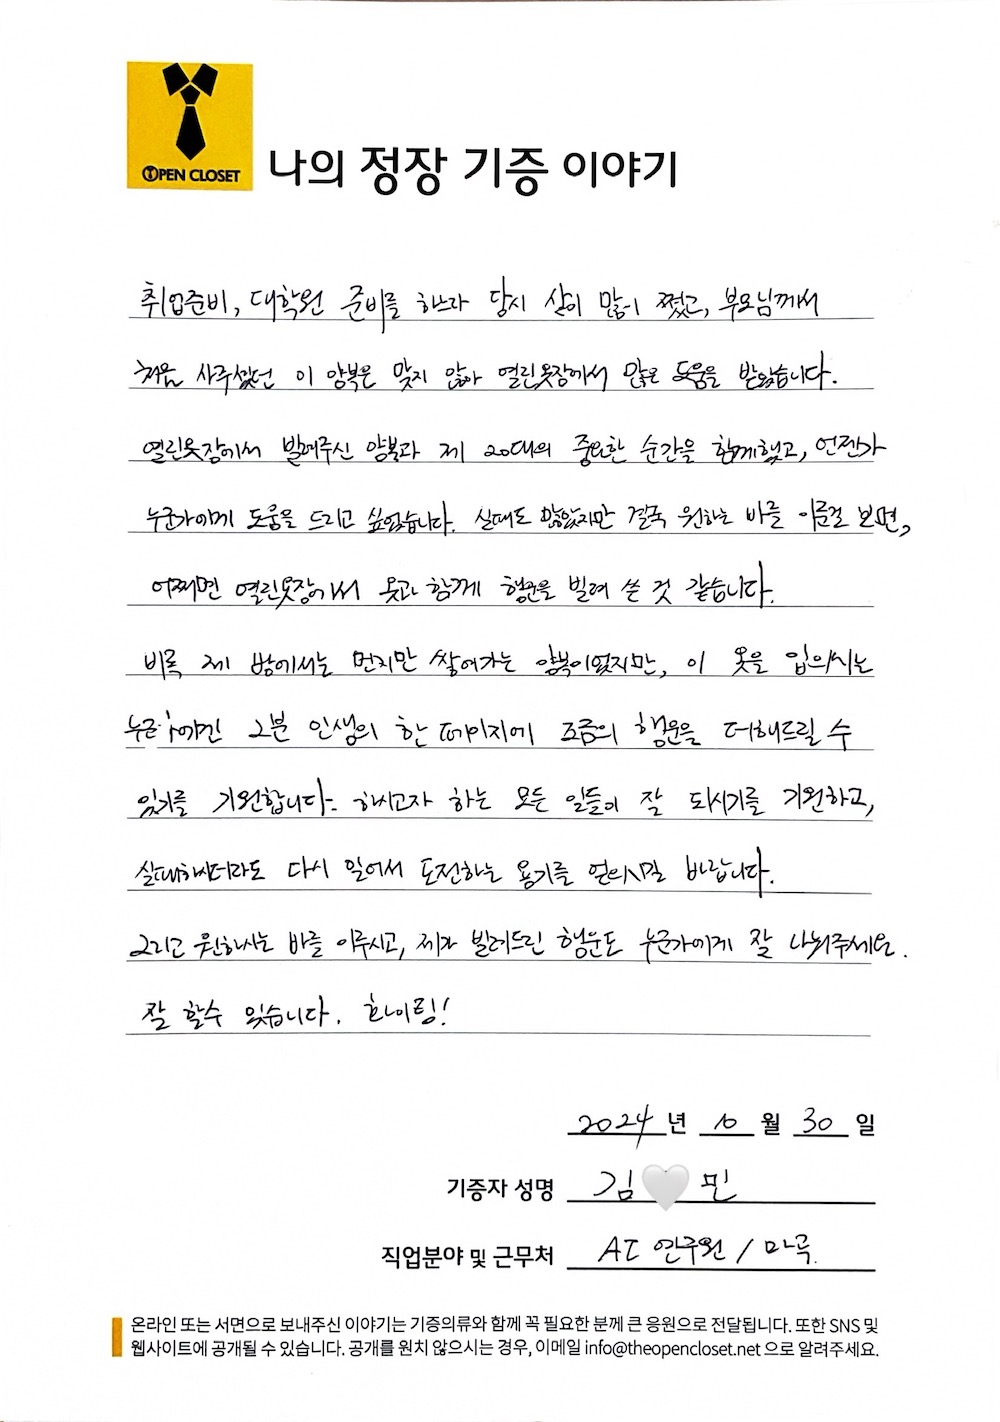 OPEN CLOSET
나의 정장 기증 이야기
취업준비, 대학원 준비를 하느라 당시 살이 많이 쪘고, 부모님께서
처음 사주셨던 이 양복은 맞지 않아 열린옷장에서 많은 도움을 받았습니다.
열린옷장에서 빌려주신 양복과 제 20대의 중요한 순간을 함께했고, 언젠가
누군가에게 도움을 드리고 싶었습니다. 실패도 많았지만 결국 원하는 바를 이룬걸 보면,
어쩌면 열린옷장에서 옷과 함께 행운을 빌려 쓴 것 같습니다.
비록 제 방에서는 먼지만 쌓여가는 양복이었지만, 이 옷을 입으시는
그분 인생의 한 페이지에 조금의 행운을 더해드릴 수
있기를 기원합니다. 하시고자 하는 모든 일들이 잘 되시기를 기원하고,
실패하시더라도 다시 일어서 도전하는 용기를 얻으시길 바랍니다.
그리고 원하시는 바를 이루시고, 제가 빌려드린 행운도 누군가에게 잘 나눠주세요.
잘 할수 있습니다. 화이팅!
2024 년 10 월 30 일
기증자 성명 김 민
직업분야 및 근무처 AI 연구원 / 마곡.
온라인 또는 서면으로 보내주신 이야기는 기증의류와 함께 꼭 필요한 분께 큰 응원으로 전달됩니다. 또한 SNS 및
웹사이트에 공개될 수 있습니다. 공개를 원치 않으시는 경우, 이메일 info@theopencloset.net 으로 알려주세요.